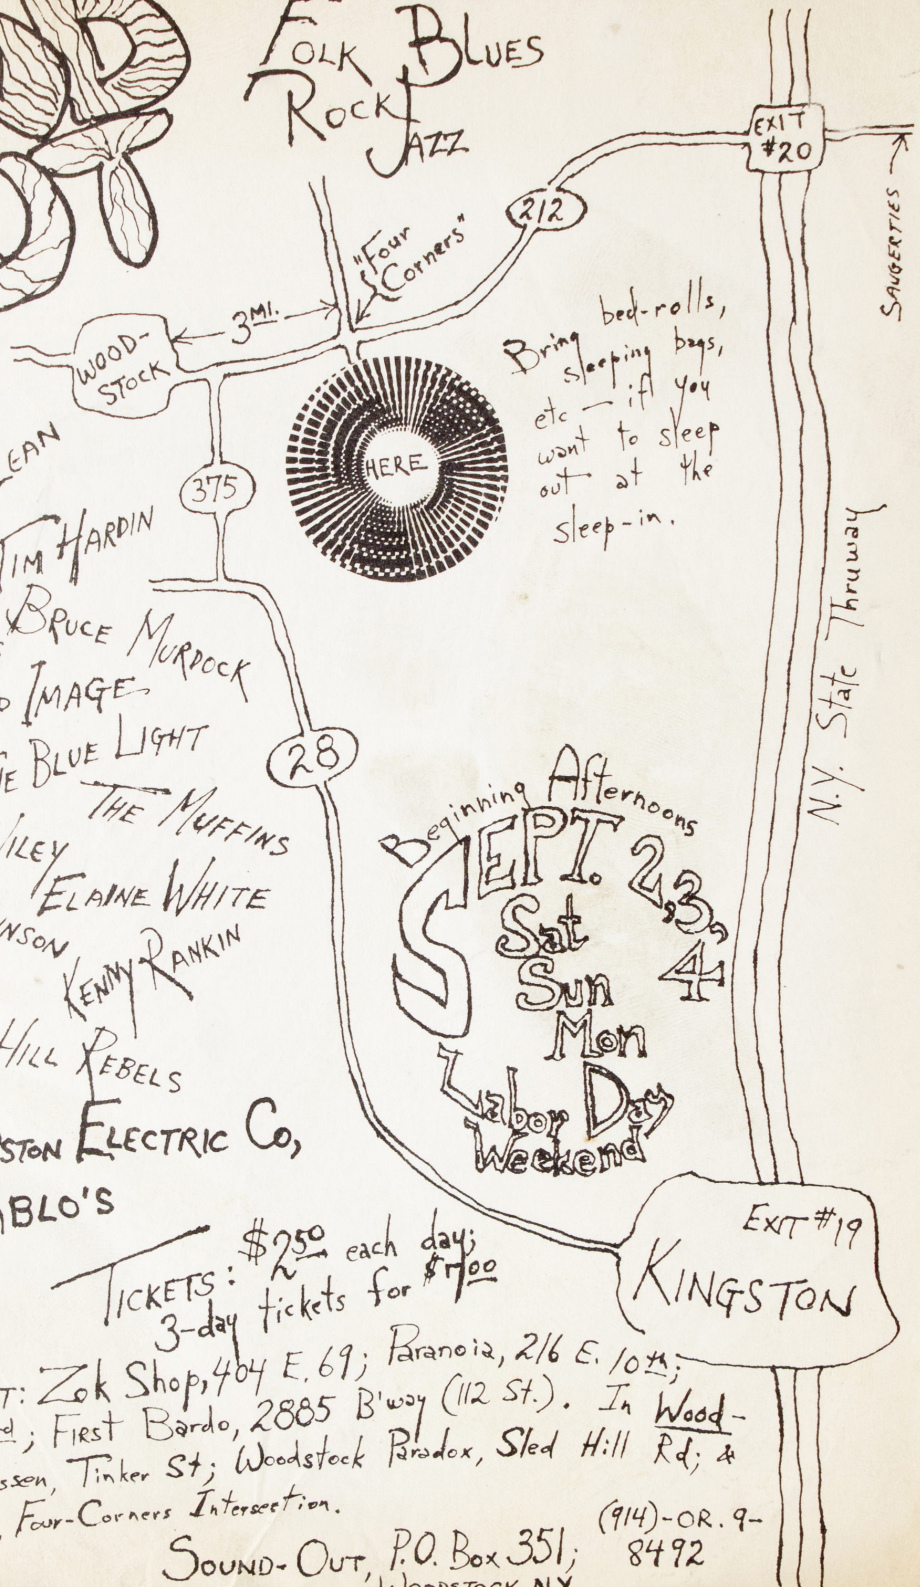 FOLK BLUES
ROCK JAZZ
EXIT
#20
212
SAUGERTIES
"FOUR
CORNERS"
3 MI.
WOOD-
STOCK
HERE
Bring bed-rolls,
sleeping bags,
etc — if you
want to sleep
out at the
sleep-in.
375
LEAN
TIM HARDIN
BRUCE MURDOCK
IMAGE
E BLUE LIGHT
THE MUFFINS
ILEY
ELAINE WHITE
NSON
KENNY RANKIN
HILL REBELS
STON ELECTRIC CO,
ABLO'S
28
N.Y. State Thruway
Beginning Afternoons
SEPT. 2,3,4
Sat
Sun
Mon
Labor Day
Weekend
EXIT #19
KINGSTON
TICKETS: $2.50 each day;
3-day tickets for $7.00
T: Zok Shop, 404 E. 69; Paranoia, 216 E. 10th;
d; FIRST Bardo, 2885 B'way (112 St.). In Wood-
ssen, Tinker St; Woodstock Paradox, Sled Hill Rd; &
, Four-Corners Intersection.
SOUND-OUT, P.O. Box 351; (914)-OR. 9-
8492
WOODSTOCK, N.Y.